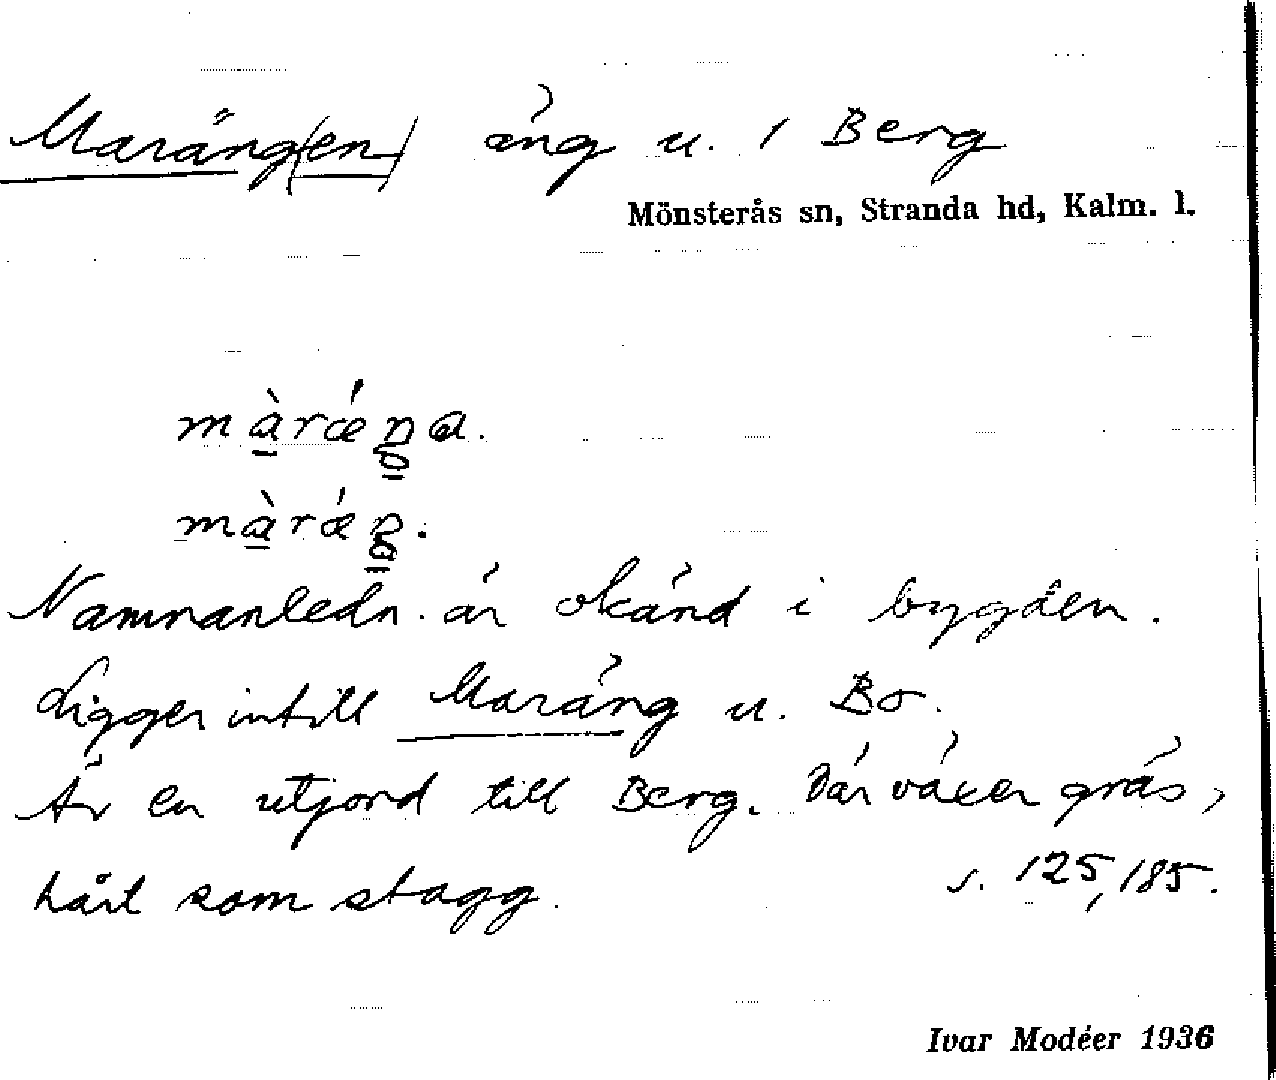 Maräng(en) äng u. 1 Berg
Mönsterås sn, Stranda hd, Kalm. l.
màrǽŋa.
màrǽŋ.
Namnanledn. är okänd i bygden.
Ligger intill Maräng u. Bo.
Är en utjord till Berg. Där växer gräs,
hårt som stagg. s. 125, 185.
Ivar Modéer 1936